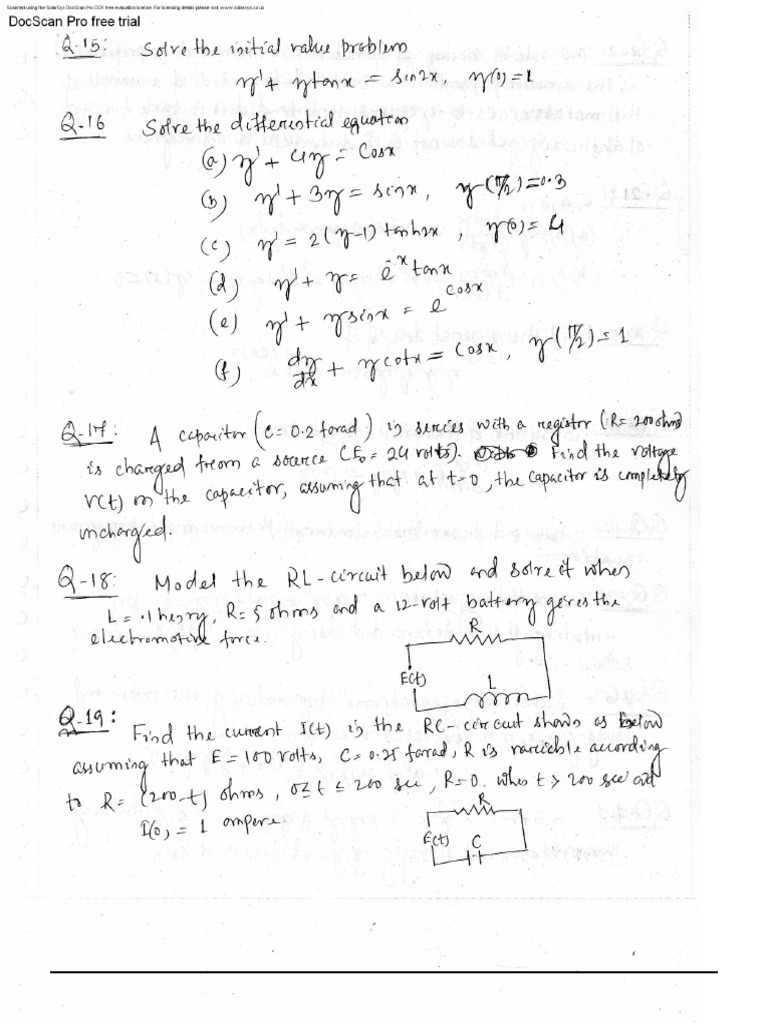 Scanned using the SolarSys DocScan Pro OCR free evaluation license. For licensing details please visit www.solarsys.co.uk
DocScan Pro free trial
Q.15: Solve the initial value problem
y' + y tanx = sin2x, y(0) = 1
Q.16 Solve the differential equation
(a) y' + 4y = Cosx
(b) y' + 3y = sinx, y(π/2) = 0.3
(c) y' = 2(y-1) tanh2x, y(0) = 4
(d) y' + y = e^-x tanx
(e) y' + y sinx = e^cosx
(f) dy/dx + y cotx = Cosx, y(π/2) = 1
Q.17: A capacitor (C = 0.2 farad) in series with a registor (R = 200 ohms)
is charged from a source (E₀ = 24 volts). Find the voltage
V(t) on the capacitor, assuming that at t=0, the capacitor is completely
uncharged.
Q-18: Model the RL-circuit below and solve it when
L = .1 henry, R = 5 ohms and a 12-volt battery gives the
electromotive force.
R
E(t)
L
Q.19: Find the current I(t) in the RC-circuit shown as below
assuming that E = 100 volts, C = 0.25 farad, R is variable according
to R = (200-t) ohms, 0 ≤ t ≤ 200 sec, R=0. when t > 200 sec and
I(0) = 1 ampere
R
E(t)
C